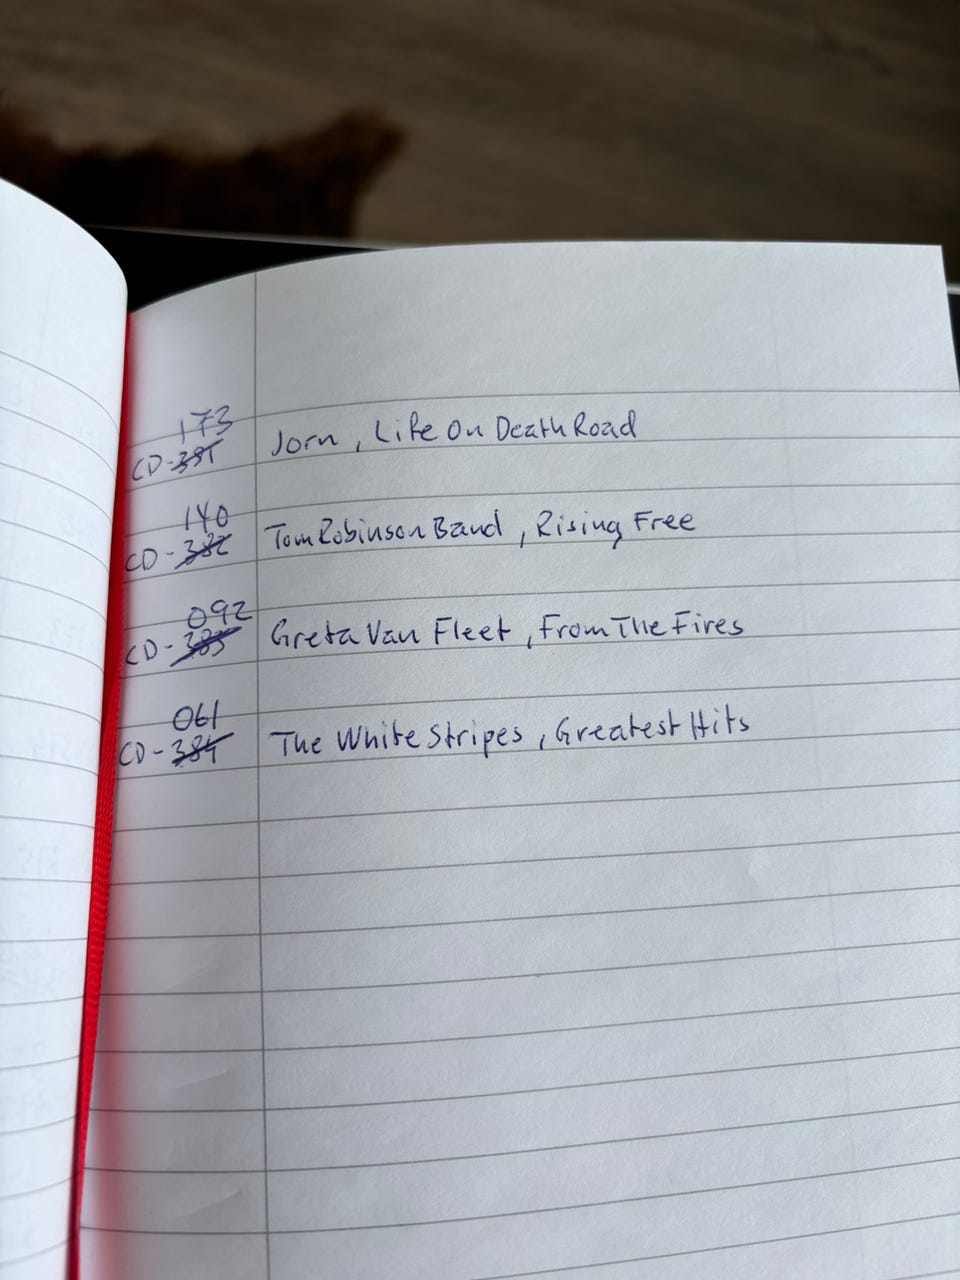 173
CD-381 Jorn, Life On Death Road
140
CD-382 Tom Robinson Band, Rising Free
092
CD-383 Greta Van Fleet, From The Fires
061
CD-384 The White Stripes, Greatest Hits